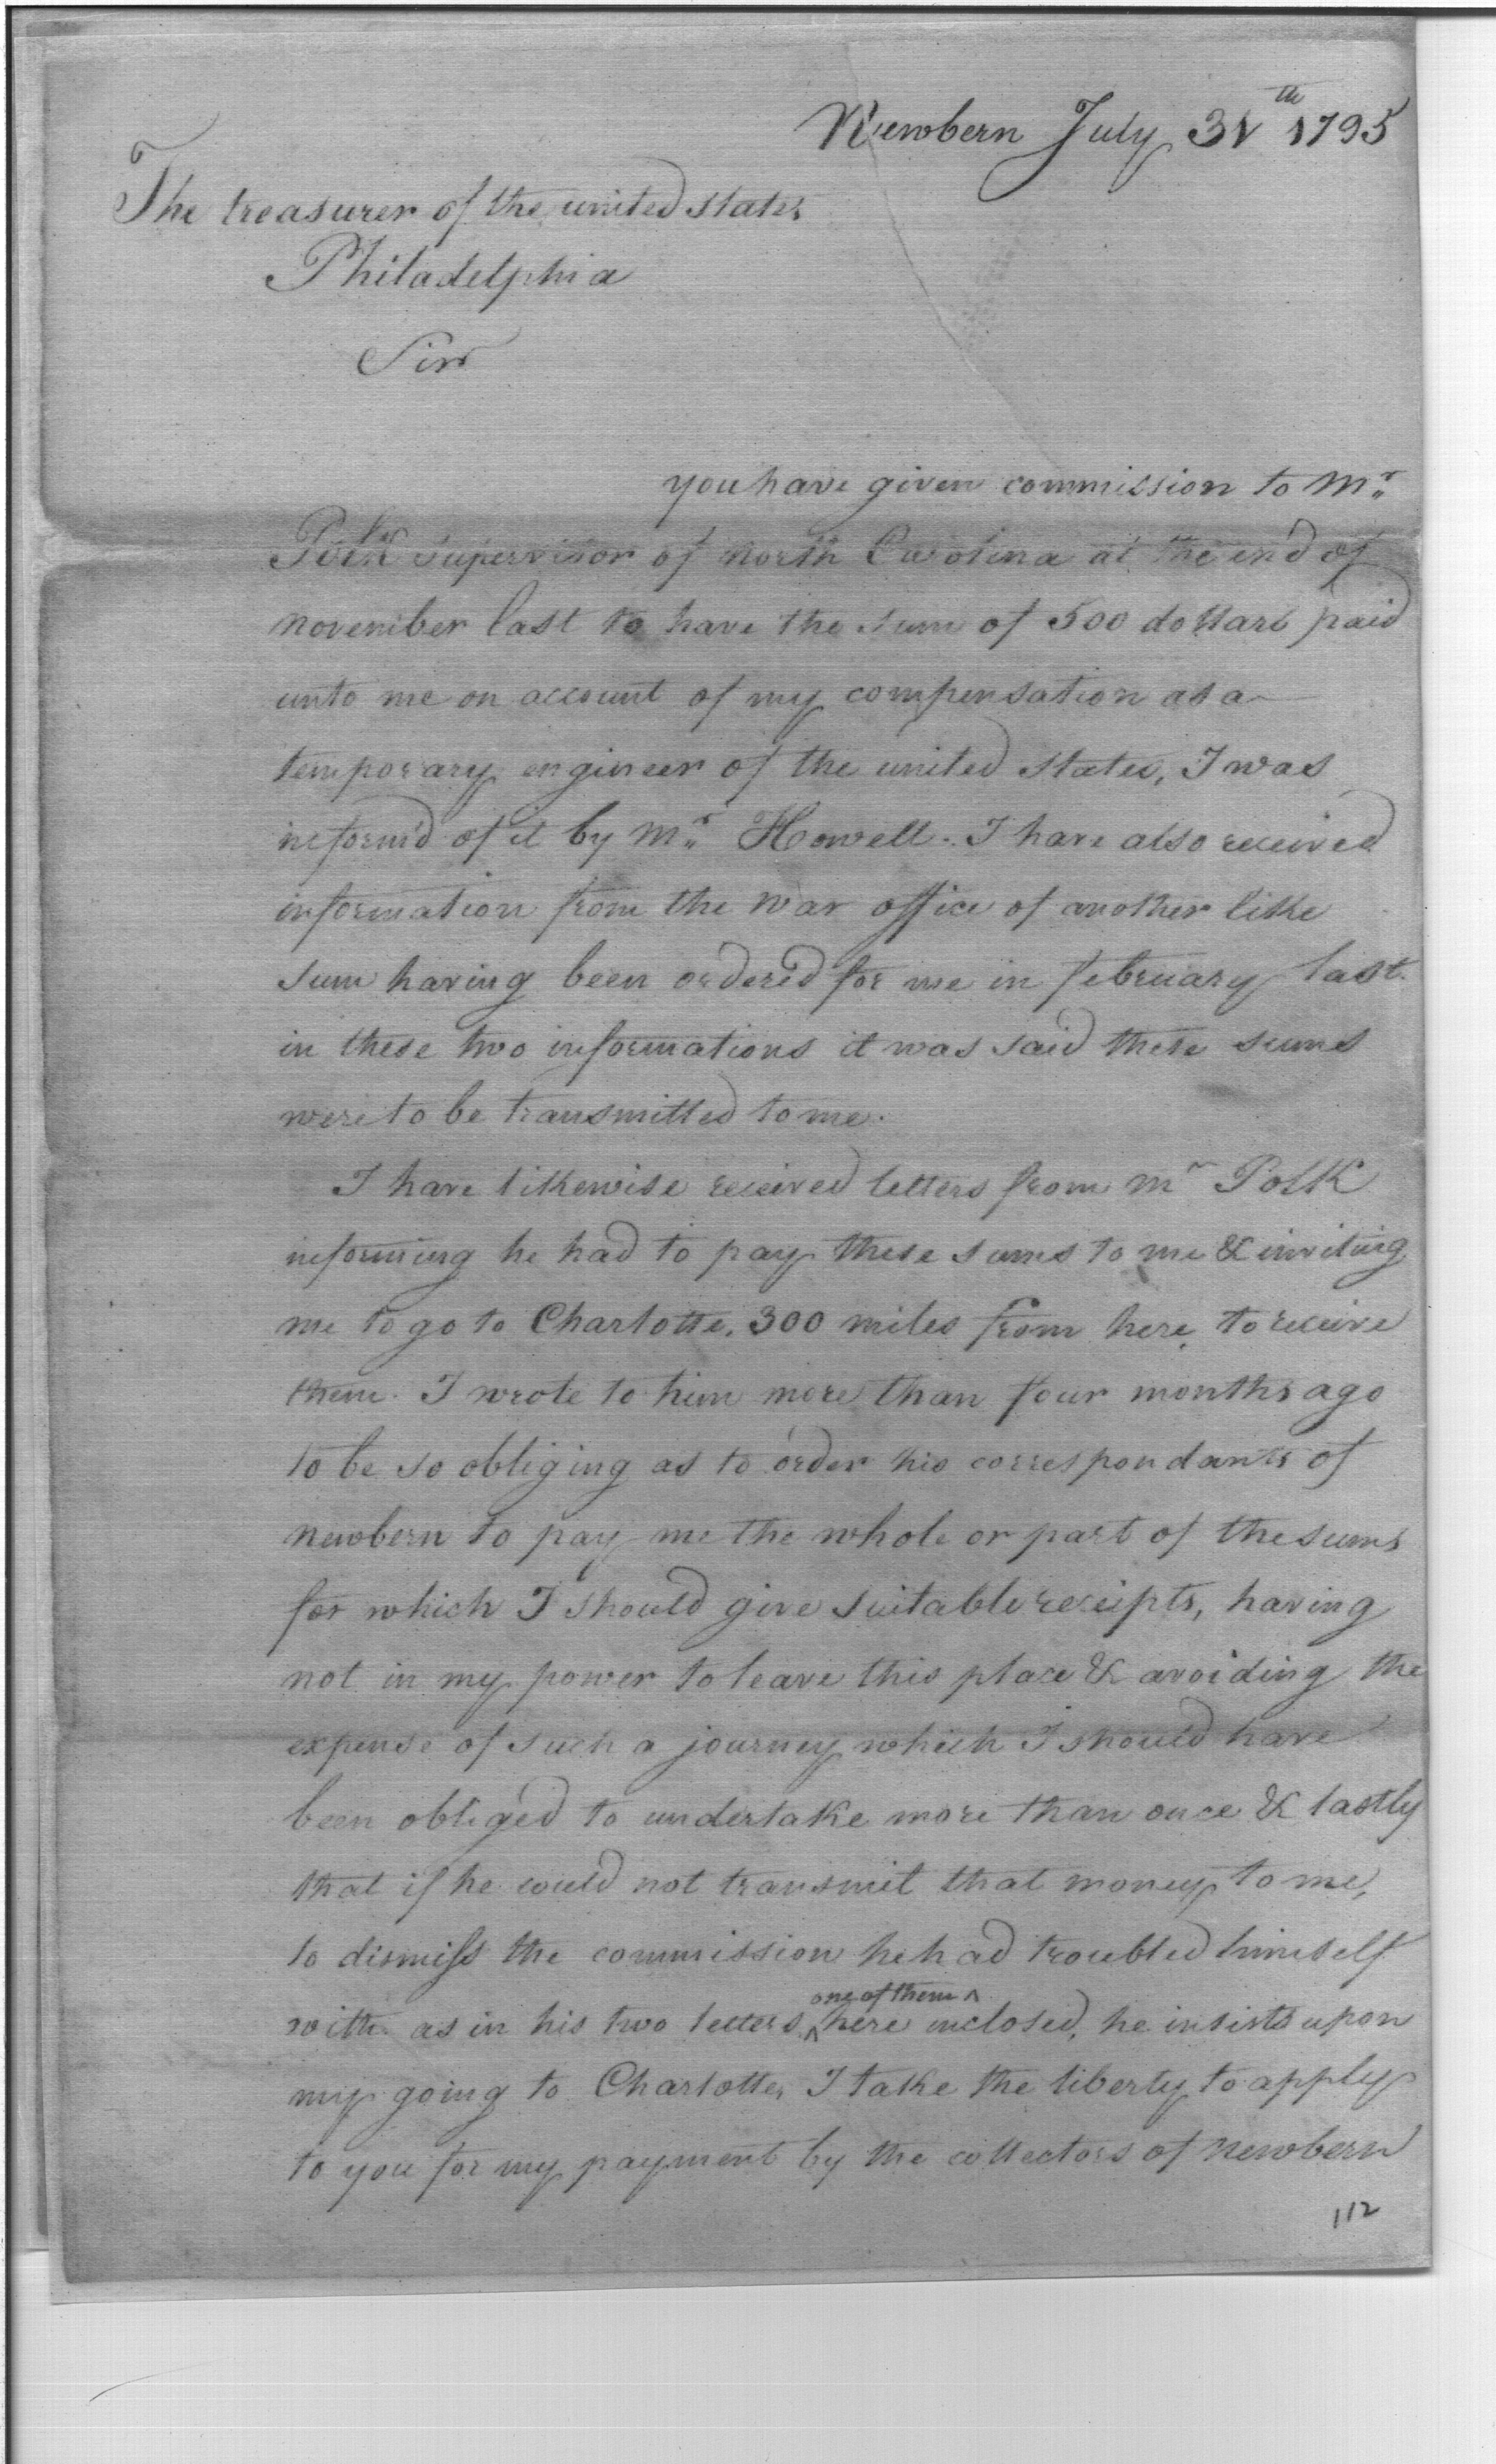 Newbern July 31th 1795
The treasurer of the united states
Philadelphia
Sir
you have given commission to Mr
Polk Supervisor of north Carolina at the end of
november last to have the sum of 500 dollars paid
unto me on account of my compensation as a
temporary engineer of the united states, I was
inform'd of it by Mr Howell. I have also received
information from the war office of another like
sum having been ordered for me in february last.
in these two informations it was said these sums
were to be transmitted to me.
I have likewise received letters from mr Polk
informing he had to pay these sums to me & inviting
me to go to Charlotte, 300 miles from here, to receive
them. I wrote to him more than four months ago
to be so obliging as to order his correspondants of
newbern to pay me the whole or part of the sums
for which I should give suitable receipts, having
not in my power to leave this place & avoiding the
expense of such a journey which I should have
been obliged to undertake more than once & lastly
that if he could not transmit that money to me,
to dismiss the commission he had troubled himself
one of them
with. as in his two letters, here inclosed, he insists upon
my going to Charlotte, I take the liberty to apply
to you for my payment by the collectors of newbern
112